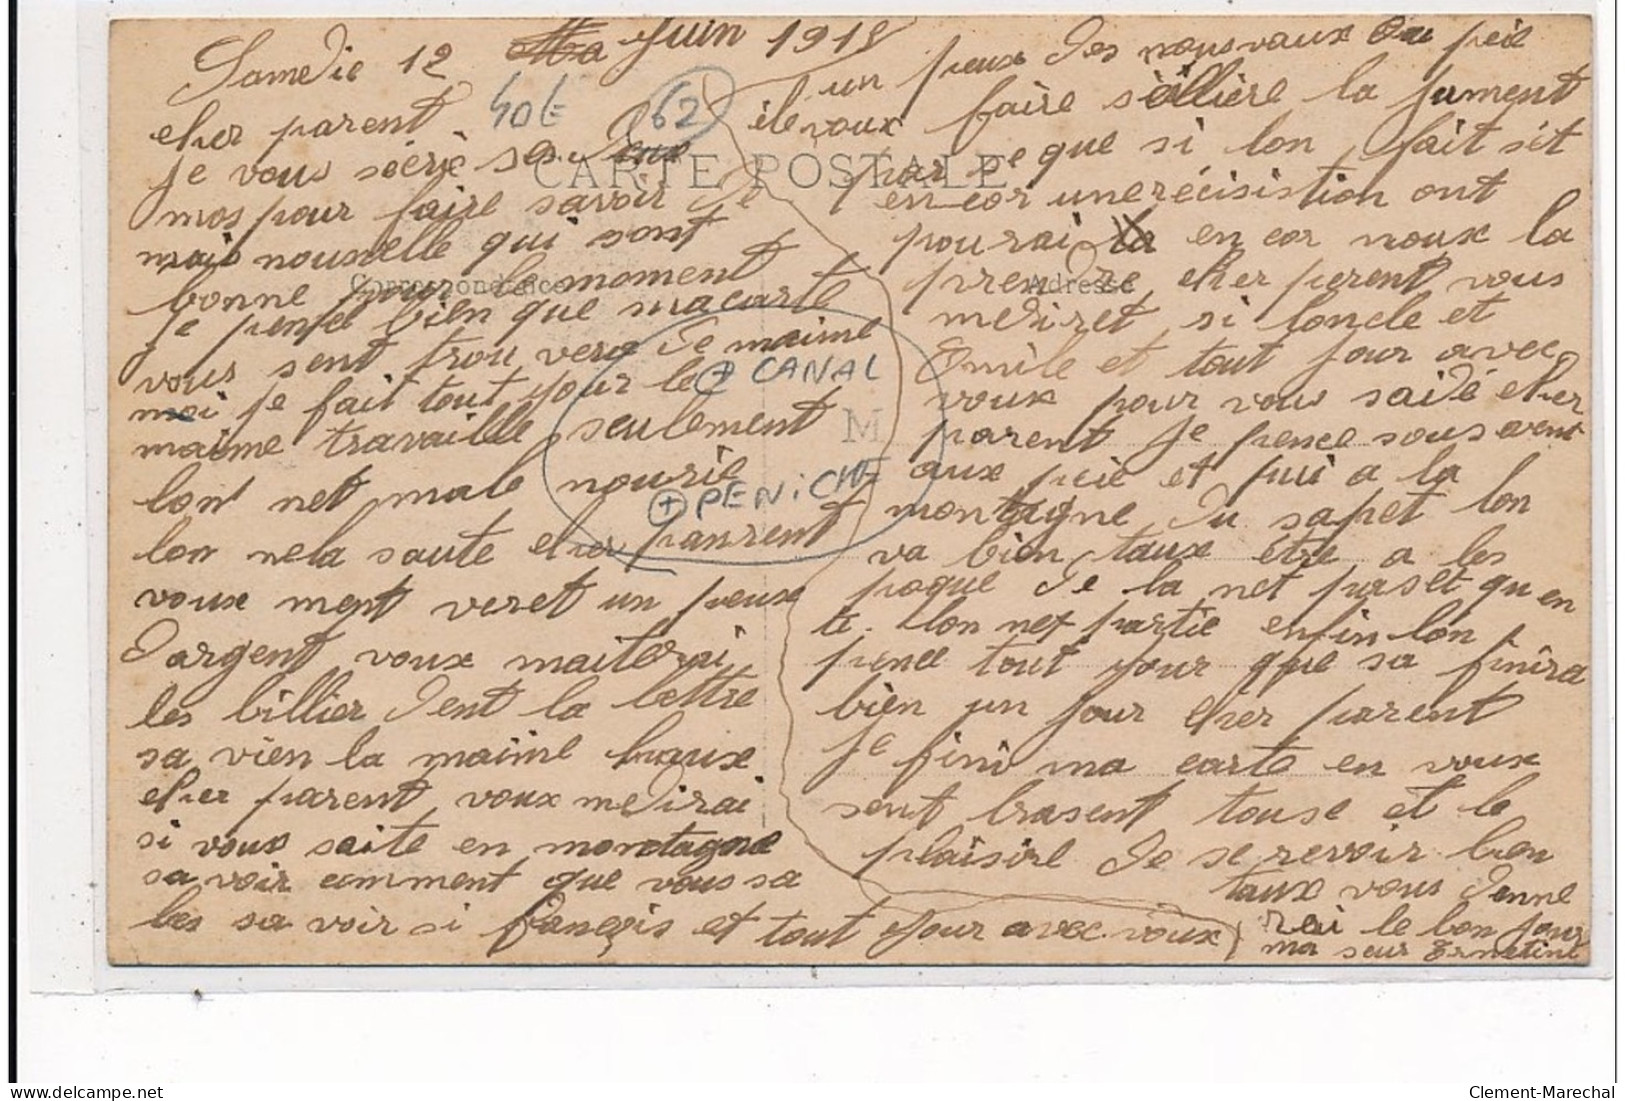 Samedie 12 Juin 1915
cher parent
je vous séeriè ses deux
mos pour faire savoir de
mais nouvelle qui sont
bonne pour le moment
je pensse bien que ma carte
vous sent trou vera de maime
moi je fait tout jour le
maime travaille seulement
lon net male nourie
lon nela saute cher parrent
voux ment veret un peux
dargent voux maiterai
les billier dent la lettre
sa vien la maiime baux
cher parent voux medirai
si voux saite en montagne
sa voir comment que vous sa
les sa voir si françis et tout jour avec voux
un peux des nouvaux du peil
ile voux faire sèllière la jument
par ce que si lon fait sèt
en cor une récisistion ont
pourai la en cor noux la
prendre cher perent vous
mediret si loncle et
Emile et tout jour avec
voux pour vous saidé cher
parent je pence sous avent
aux peie et pui a la
montaigne du sapet lon
va bien taux être a les
poque de la net passèt qu en
te. lon net partie enfin lon
pence tout jour que sa finira
bien un jour cher parent
je fini ma carte en voux
sent brasent touse et le
plaisire de se revoir bien
taux vous denne
rai le bon jour
ma seur Ernetine
CARTE POSTALE
Correspondance
Adresse
M
40E
62
+ CANAL
+ PENICHE
Clement-Marechal